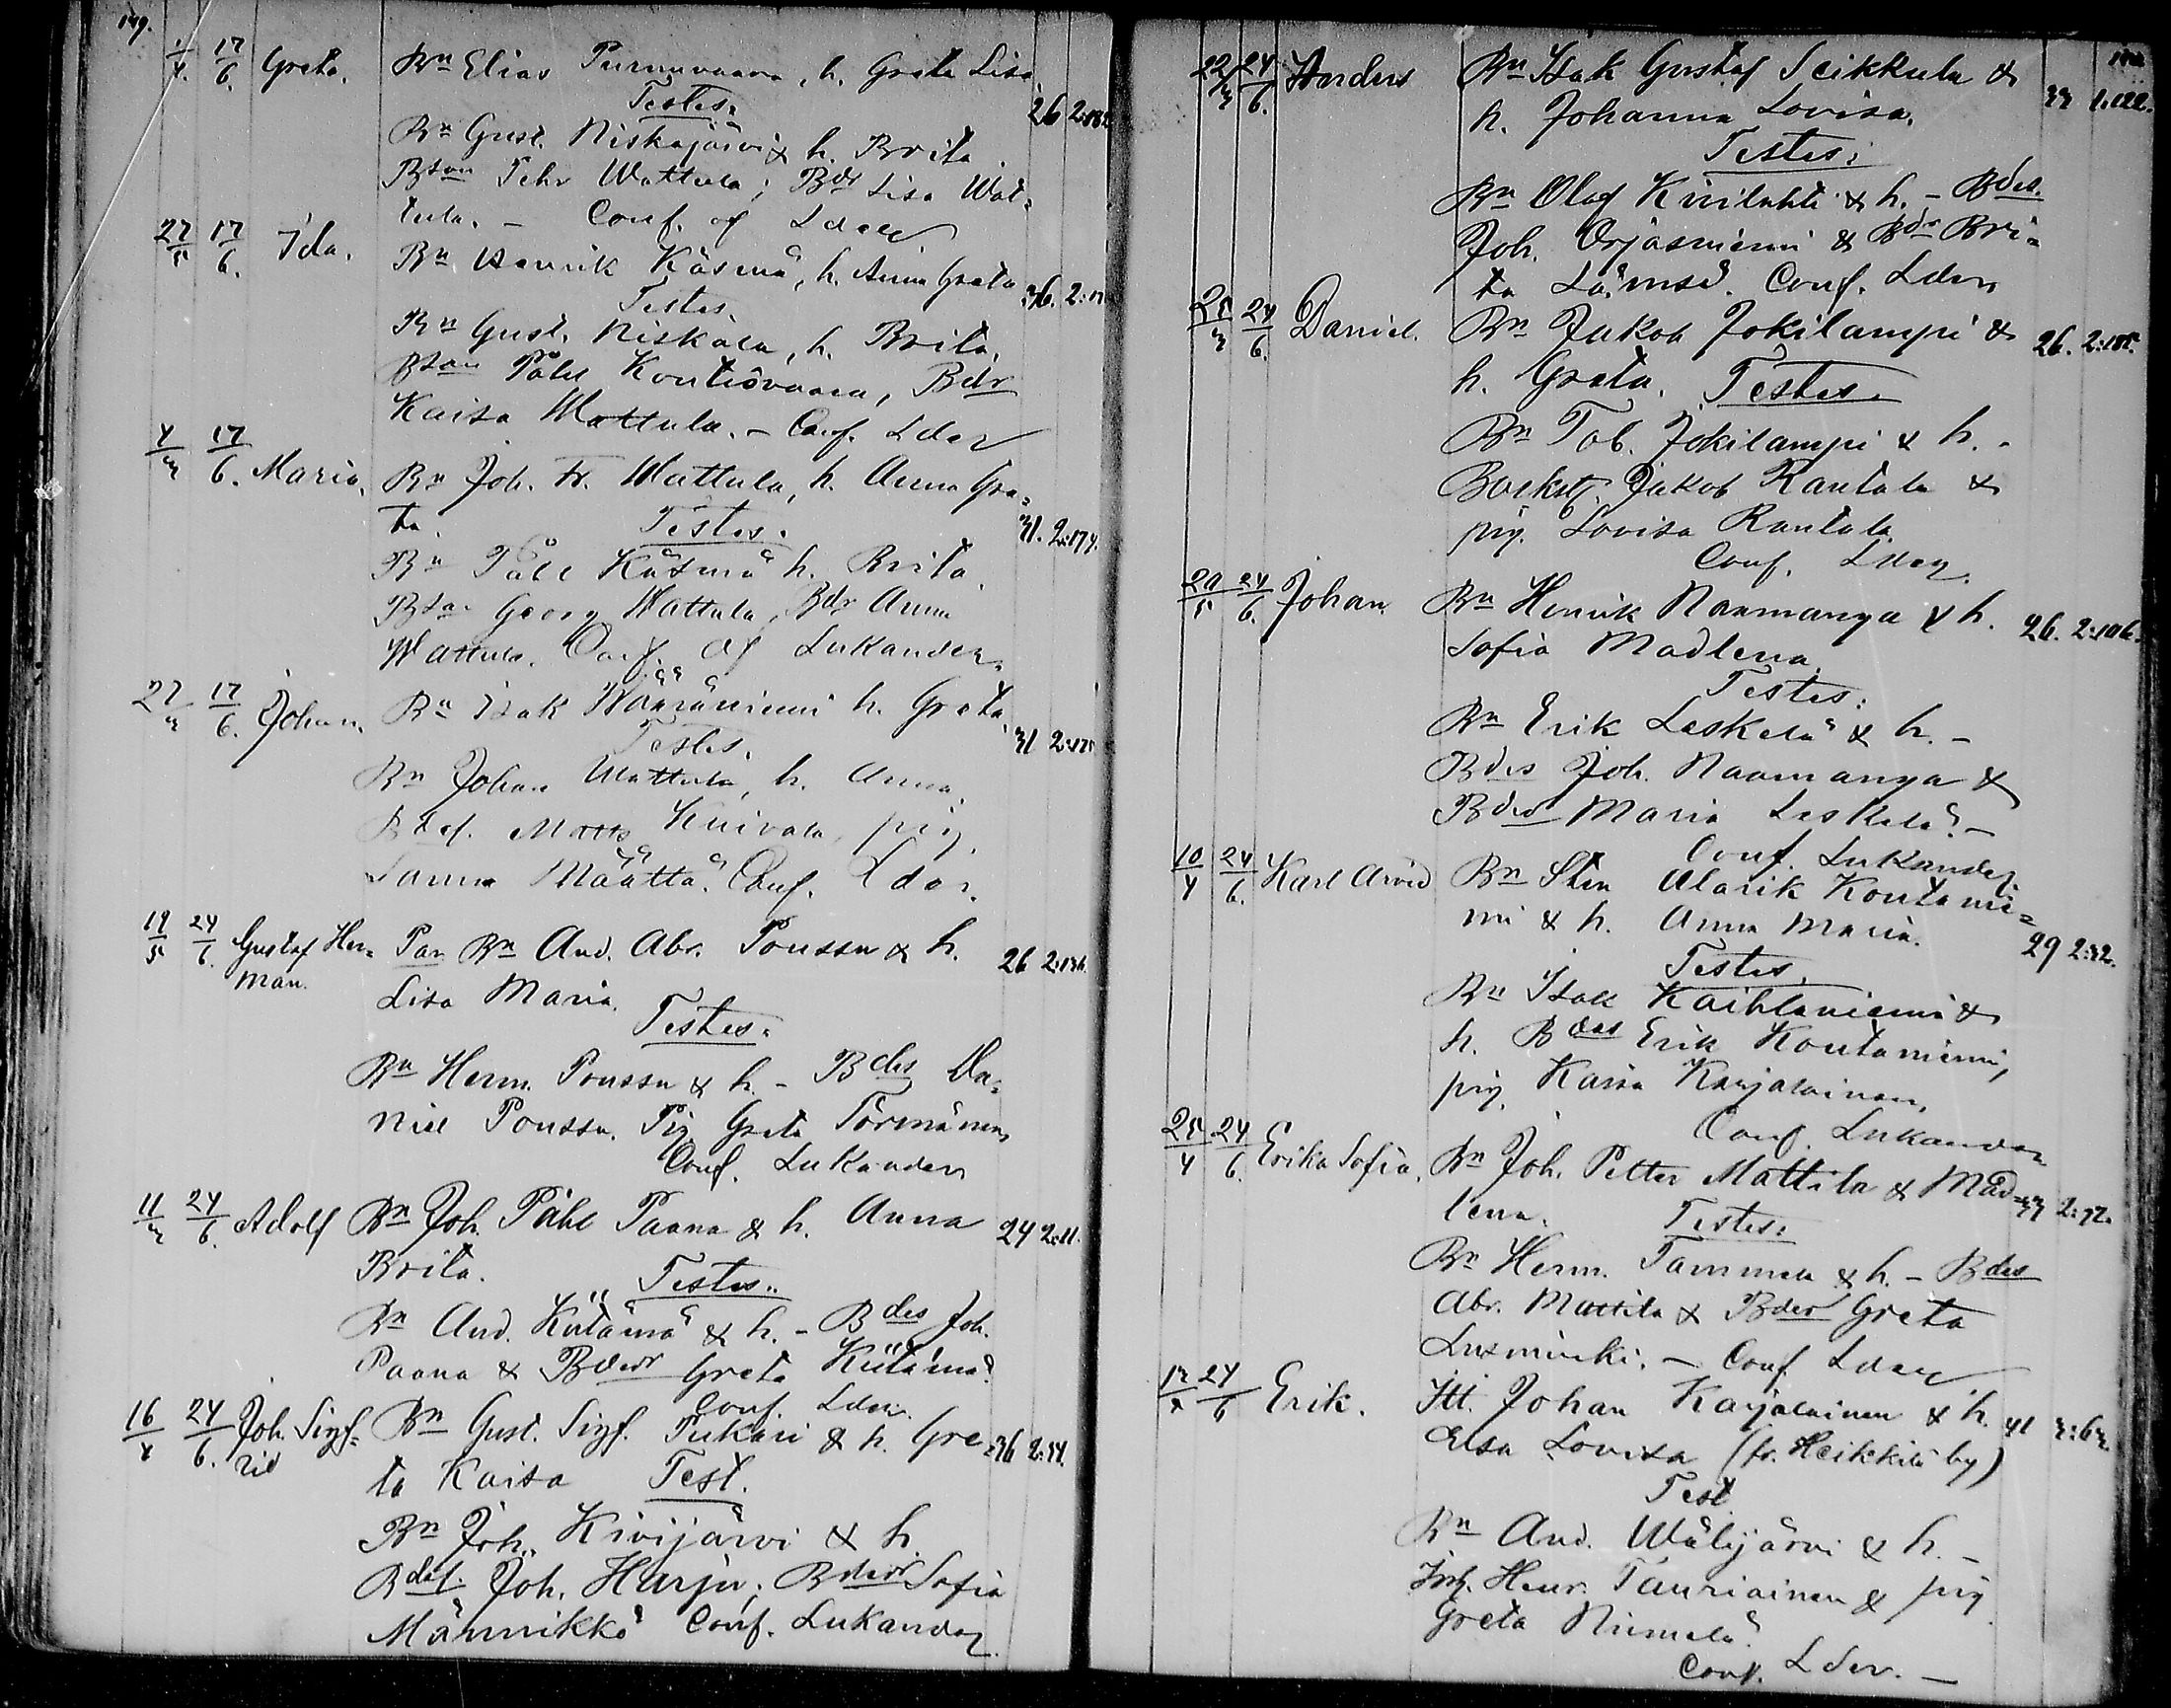 149.
1/4. 17/6. Greta. Bn Elias Purnuvaara, h. Greta Lisa 26 2:182
Testes.
Bn Gust. Niskajärvi & h. Brita.
Bson Pehr Wattula; Bdr Lisa Wat-
tula. – Conf. af Lder
27/5 17/6. Ida. Bn Henrik Käsmä, h. Anna Greta 36. 2:17
Testes.
Bn Gust. Niskala, h. Brita.
Bson Påhl Kontiovaara, Bdr
Kaisa Wattula. – Conf. Lder
4/3 17/6. Maria. Bn Joh. Fr. Wattula, h. Anna Gre-
ta. Testes. 31. 2:174.
Bn Påhl Käsmä h. Brita.
Bson Georg Wattula, Bdr Anna
Wattula. Conf. af Lukander.
27/3 17/6. Johan. Bn Isak Määräniemi h. Greta.
Testes. 31 2:175
Bn Johan Wattula, h. Anna.
Matts Kuivala, pig.
Sanna Määttä. Conf. Lder.
19/5 24/6. Gustaf Her- Par. Bn And. Abr. Poussu & h. 26 2:136.
man. Lisa Maria.
Testes.
Bn Herm. Poussu & h. – Bdes Da-
niel Poussu. Pig. Greta Törmänen
Conf. Lukander
11/3 24/6. Adolf Bn Joh. Påhl Paana & h. Anna 24 2:11.
Brita. Testes.
Bn And. Kiitämä & h. – Bdes Joh.
Paana & Bder Greta Kiitämä.
Conf. Lder.
16/4 24/6. Joh. Sigf- Bn Gust. Sigf. Pukari & h. Gre- 36 2:54.
rid ta Kaisa Test.
Bn Joh. Kivijärvi & h.
Bdes. Joh. Harju; Bder Sofia
Männikkö Conf. Lukander.
22/3 24/6. Anders Bn Isak Gustaf Seikkula & 33 1:122.
h. Johanna Lovisa.
Testes:
Bn Olof Kivilahti & h. – Bdes.
Joh. Orjasniemi & Bdr Bri-
ta Lämsä. Conf. Lder
25/3 24/6. Daniel. Bn Jakob Jokilampi & 26. 2:185.
h. Greta. Testes.
Bn Tob. Jokilampi & h. -
Backst. Jakob Rantala &
pig. Lovisa Rantala.
Conf. Lder.
20/5 24/6. Johan. Bn Henrik Naamanga & h. 26. 2:106.
Sofia Madlena.
Testes:
Bn Erik Leskelä & h. –
Bdes Joh. Naamanga &
Bder Maria Leskelä. –
Conf. Lukander.
10/4 24/6. Karl Arvid Bn Sten Alarik Koutanie-
mi & h. Anna Maria. 29 2:32.
Testes.
Bn Isak Kaihlaniemi &
h. Bdes Erik Koutaniemi,
pig. Kaisa Karjalainen.
Conf. Lukander
25/4 24/6. Erika Sofia. Bn Joh. Petter Mattila & Mad- 33 2:72.
lena. Testes:
Bn Herm. Tammela & h. – Bdes
Abr. Mattila & Bder Greta
Luzminki. – Conf. Lder
24/6 Erik. Itt. Johan Karjalainen & h. 41 3:63.
Elsa Lovisa (fr. Heikkilä by)
Test
Bn And. Wälijärvi & h. –
Inh. Henr. Tauriainen & pig
Greta Niemelä.
Conf. Lder. –